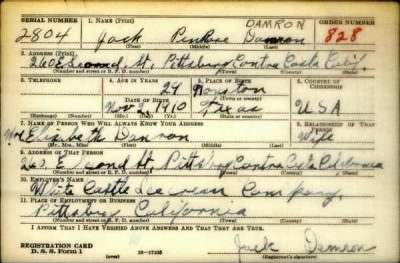 SERIAL NUMBER 1. NAME (Print) DAMRON ORDER NUMBER
2804 Jack Damron 828
(First) (Middle) (Last)
2. ADDRESS (Print)
260 E Second St, Pittsburg Contra Costa Calif.
(Number and street or R. F. D. number) (Town) (County) (State)
3. TELEPHONE 4. AGE IN YEARS 5. PLACE OF BIRTH 6. COUNTRY OF CITIZENSHIP
29 Houston
DATE OF BIRTH (Town or county)
Nov 1 1910 Texas U S A
(Exchange) (Number) (Mo.) (Day) (Yr.) (State or country)
7. NAME OF PERSON WHO WILL ALWAYS KNOW YOUR ADDRESS 8. RELATIONSHIP OF THAT PERSON
Mrs Elizabeth Damron Wife
(Mr., Mrs., Miss) (First) (Middle) (Last)
9. ADDRESS OF THAT PERSON
260 E Second St, Pittsburg Contra Costa California
(Number and street or R. F. D. number) (Town) (County) (State)
10. EMPLOYER'S NAME
White Castle Ice cream Company
11. PLACE OF EMPLOYMENT OR BUSINESS
Pittsburg California
(Number and street or R. F. D. number) (Town) (County) (State)
I AFFIRM THAT I HAVE VERIFIED ABOVE ANSWERS AND THAT THEY ARE TRUE.
REGISTRATION CARD
D. S. S. Form 1 (over) Jack Damron
(Registrant's signature)